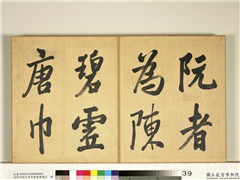 阮者
為陳
碧虛
唐巾
39
國立故宮博物院